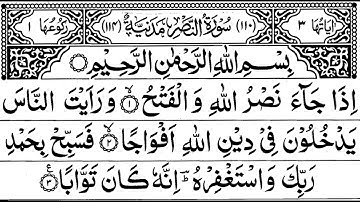 اٰیَاتُهَا ٣ (١١٠) سُوْرَةُ النَّصْرِ مَدَنِیَّةٌ (١١٤) رُكُوْعُهَا ١
بِسْمِ اللّٰهِ الرَّحْمٰنِ الرَّحِیْمِ
اِذَا جَآءَ نَصْرُ اللّٰهِ وَالْفَتْحُ ۙ۝١ وَرَاَیْتَ النَّاسَ
یَدْخُلُوْنَ فِیْ دِیْنِ اللّٰهِ اَفْوَاجًا ۙ۝٢ فَسَبِّحْ بِحَمْدِ
رَبِّكَ وَاسْتَغْفِرْهُ ؕ اِنَّهٗ كَانَ تَوَّابًا ۝٣